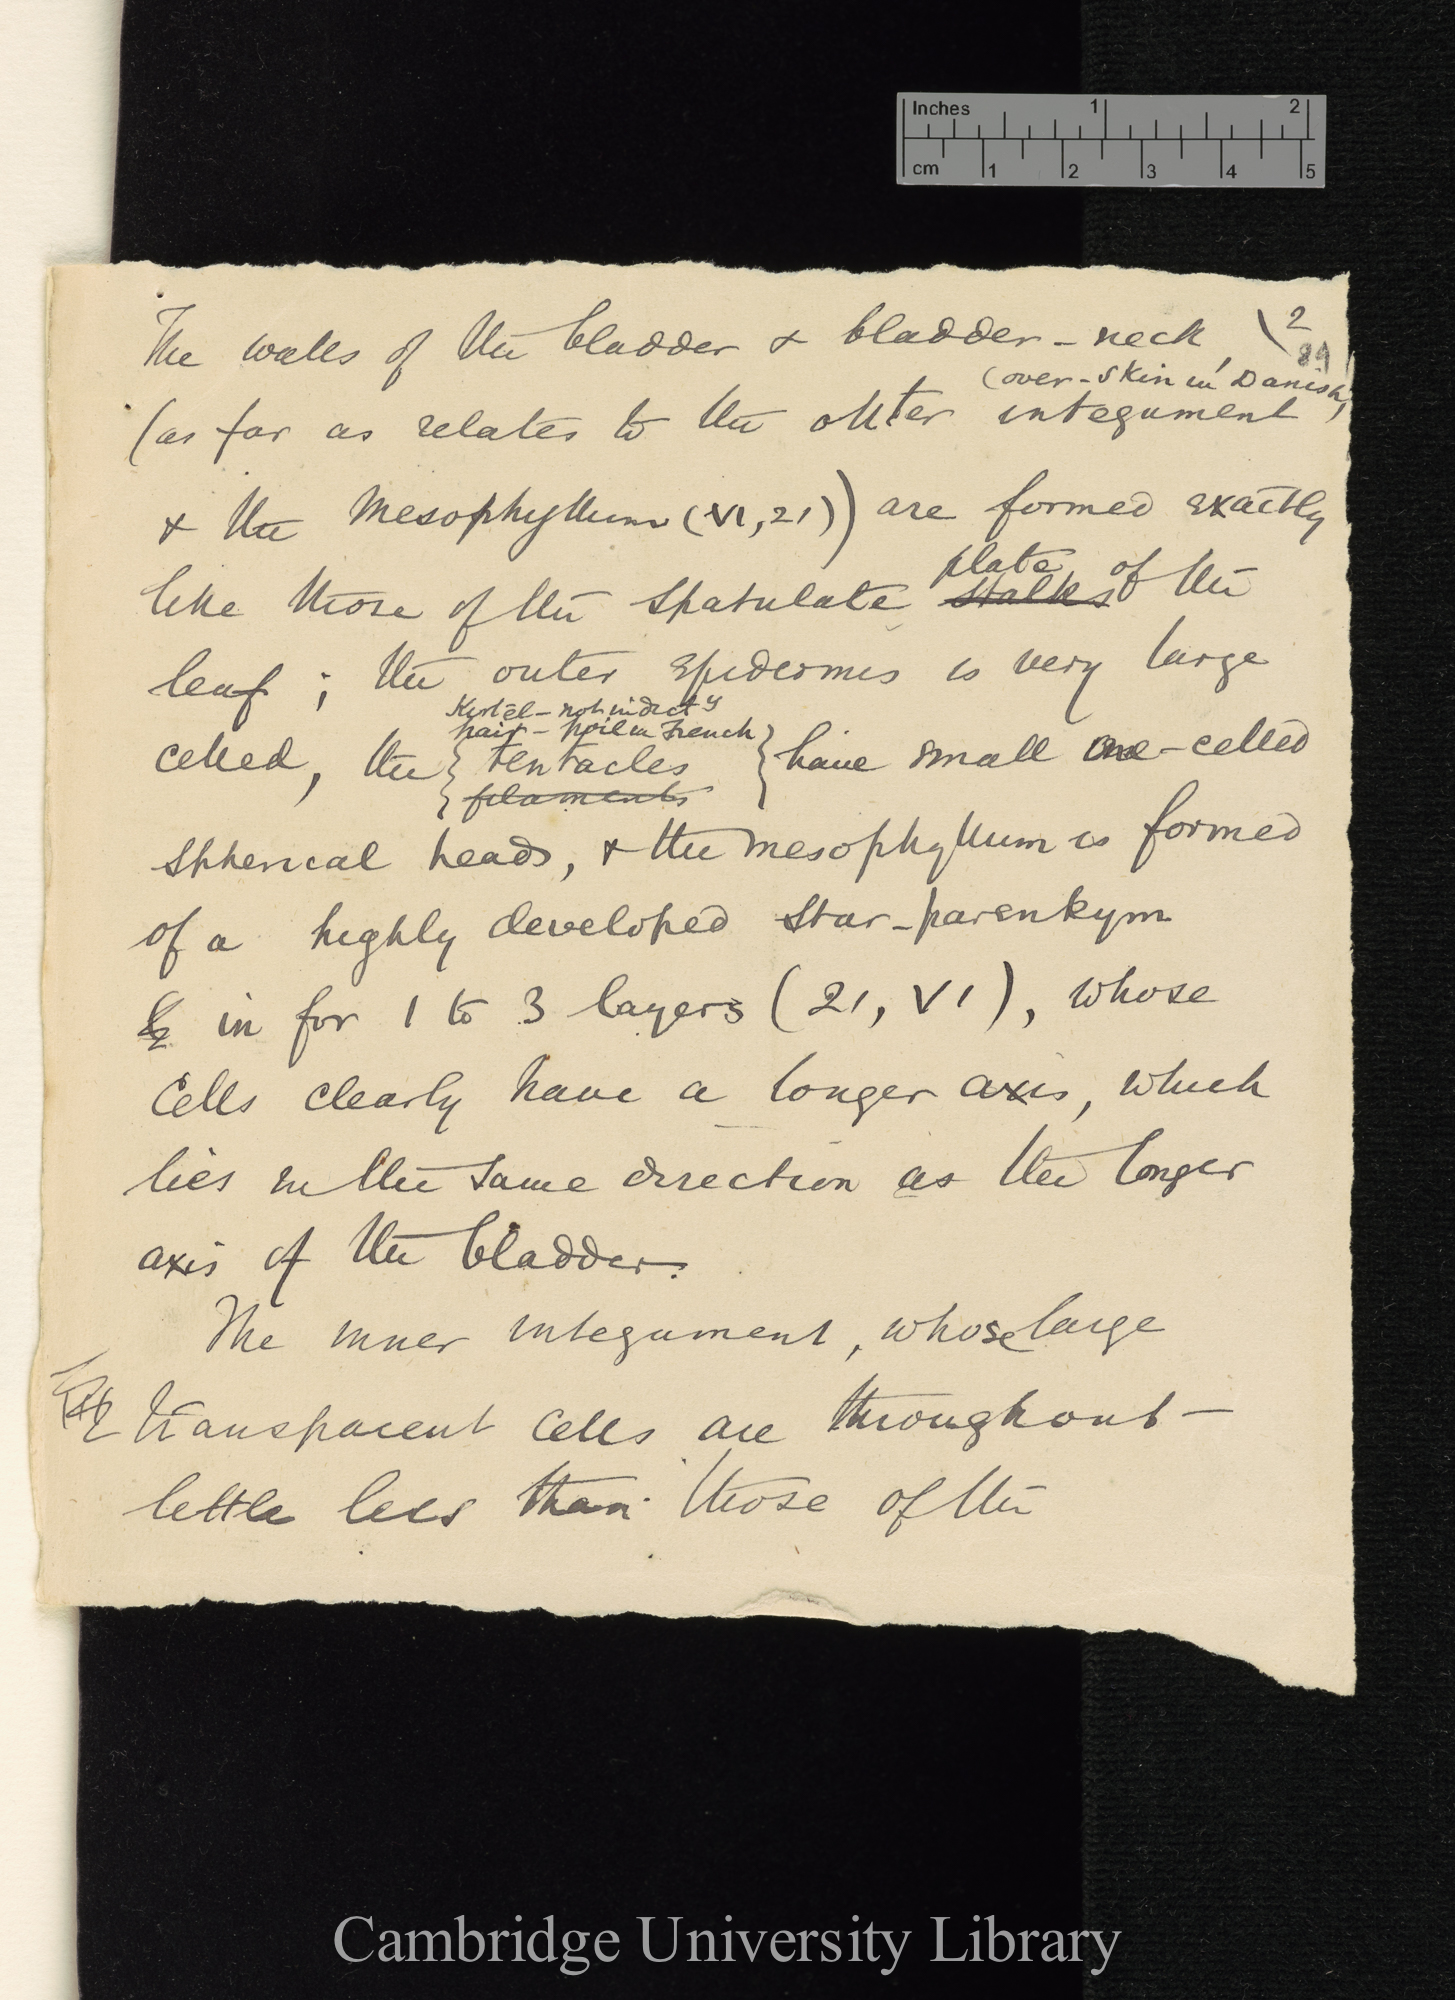 Inches 1 2
cm 1 2 3 4 5
2
89
The walls of the bladder & bladder-neck,
(over-skin in Danish)
(as far as relates to the outer integument
& the mesophyllum (VI, 21)) are formed exactly
plate
like those of the spatulate stalks of the
leaf; the outer epidermis is very large
Kertel - not in dicty
hair - poil in French
celled, the { tentacles } have small one-celled
filaments
sphericcal heads, & the mesophyllum is formed
of a highly developed star-parenkym
in for 1 to 3 layers (21, VI), whose
cells clearly have a longer axis, which
lies in the same direction as the longer
axis of the bladder.
The inner integument, whose large
transparent cells are throughout –
little less than those of the
Cambridge University Library